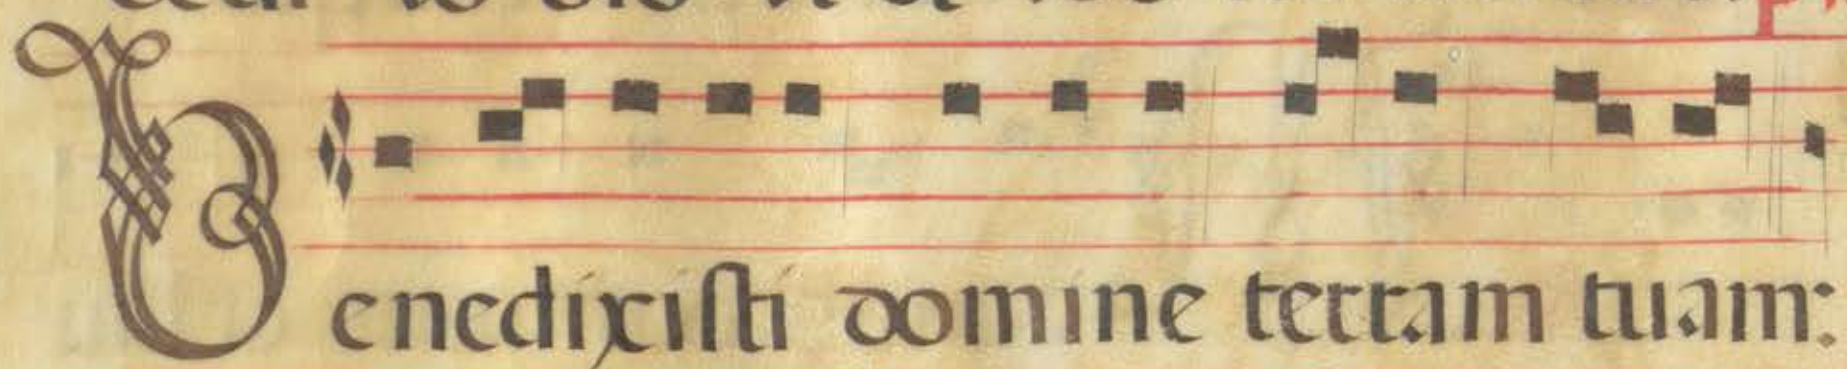 Benedixisti domine terram tuam: